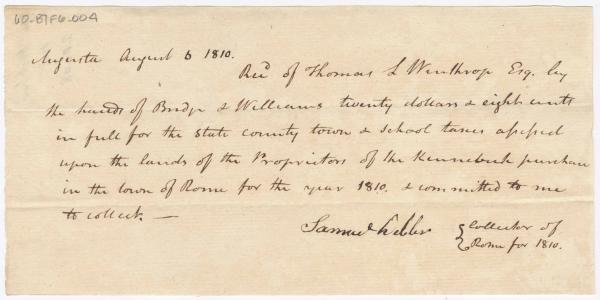 60-B7F6-004
Augusta August 6 1810.
Recd of Thomas L Winthrop Esq. by
the hands of Bridge & Williams twenty dollars & eight cents
in full for the state county town & school taxes assessed
upon the lands of the Proprietors of the Kennebeck purchase
in the town of Rome for the year 1810. & committed to me
to collect. —
Samuel
Collector of
Rome for 1810.